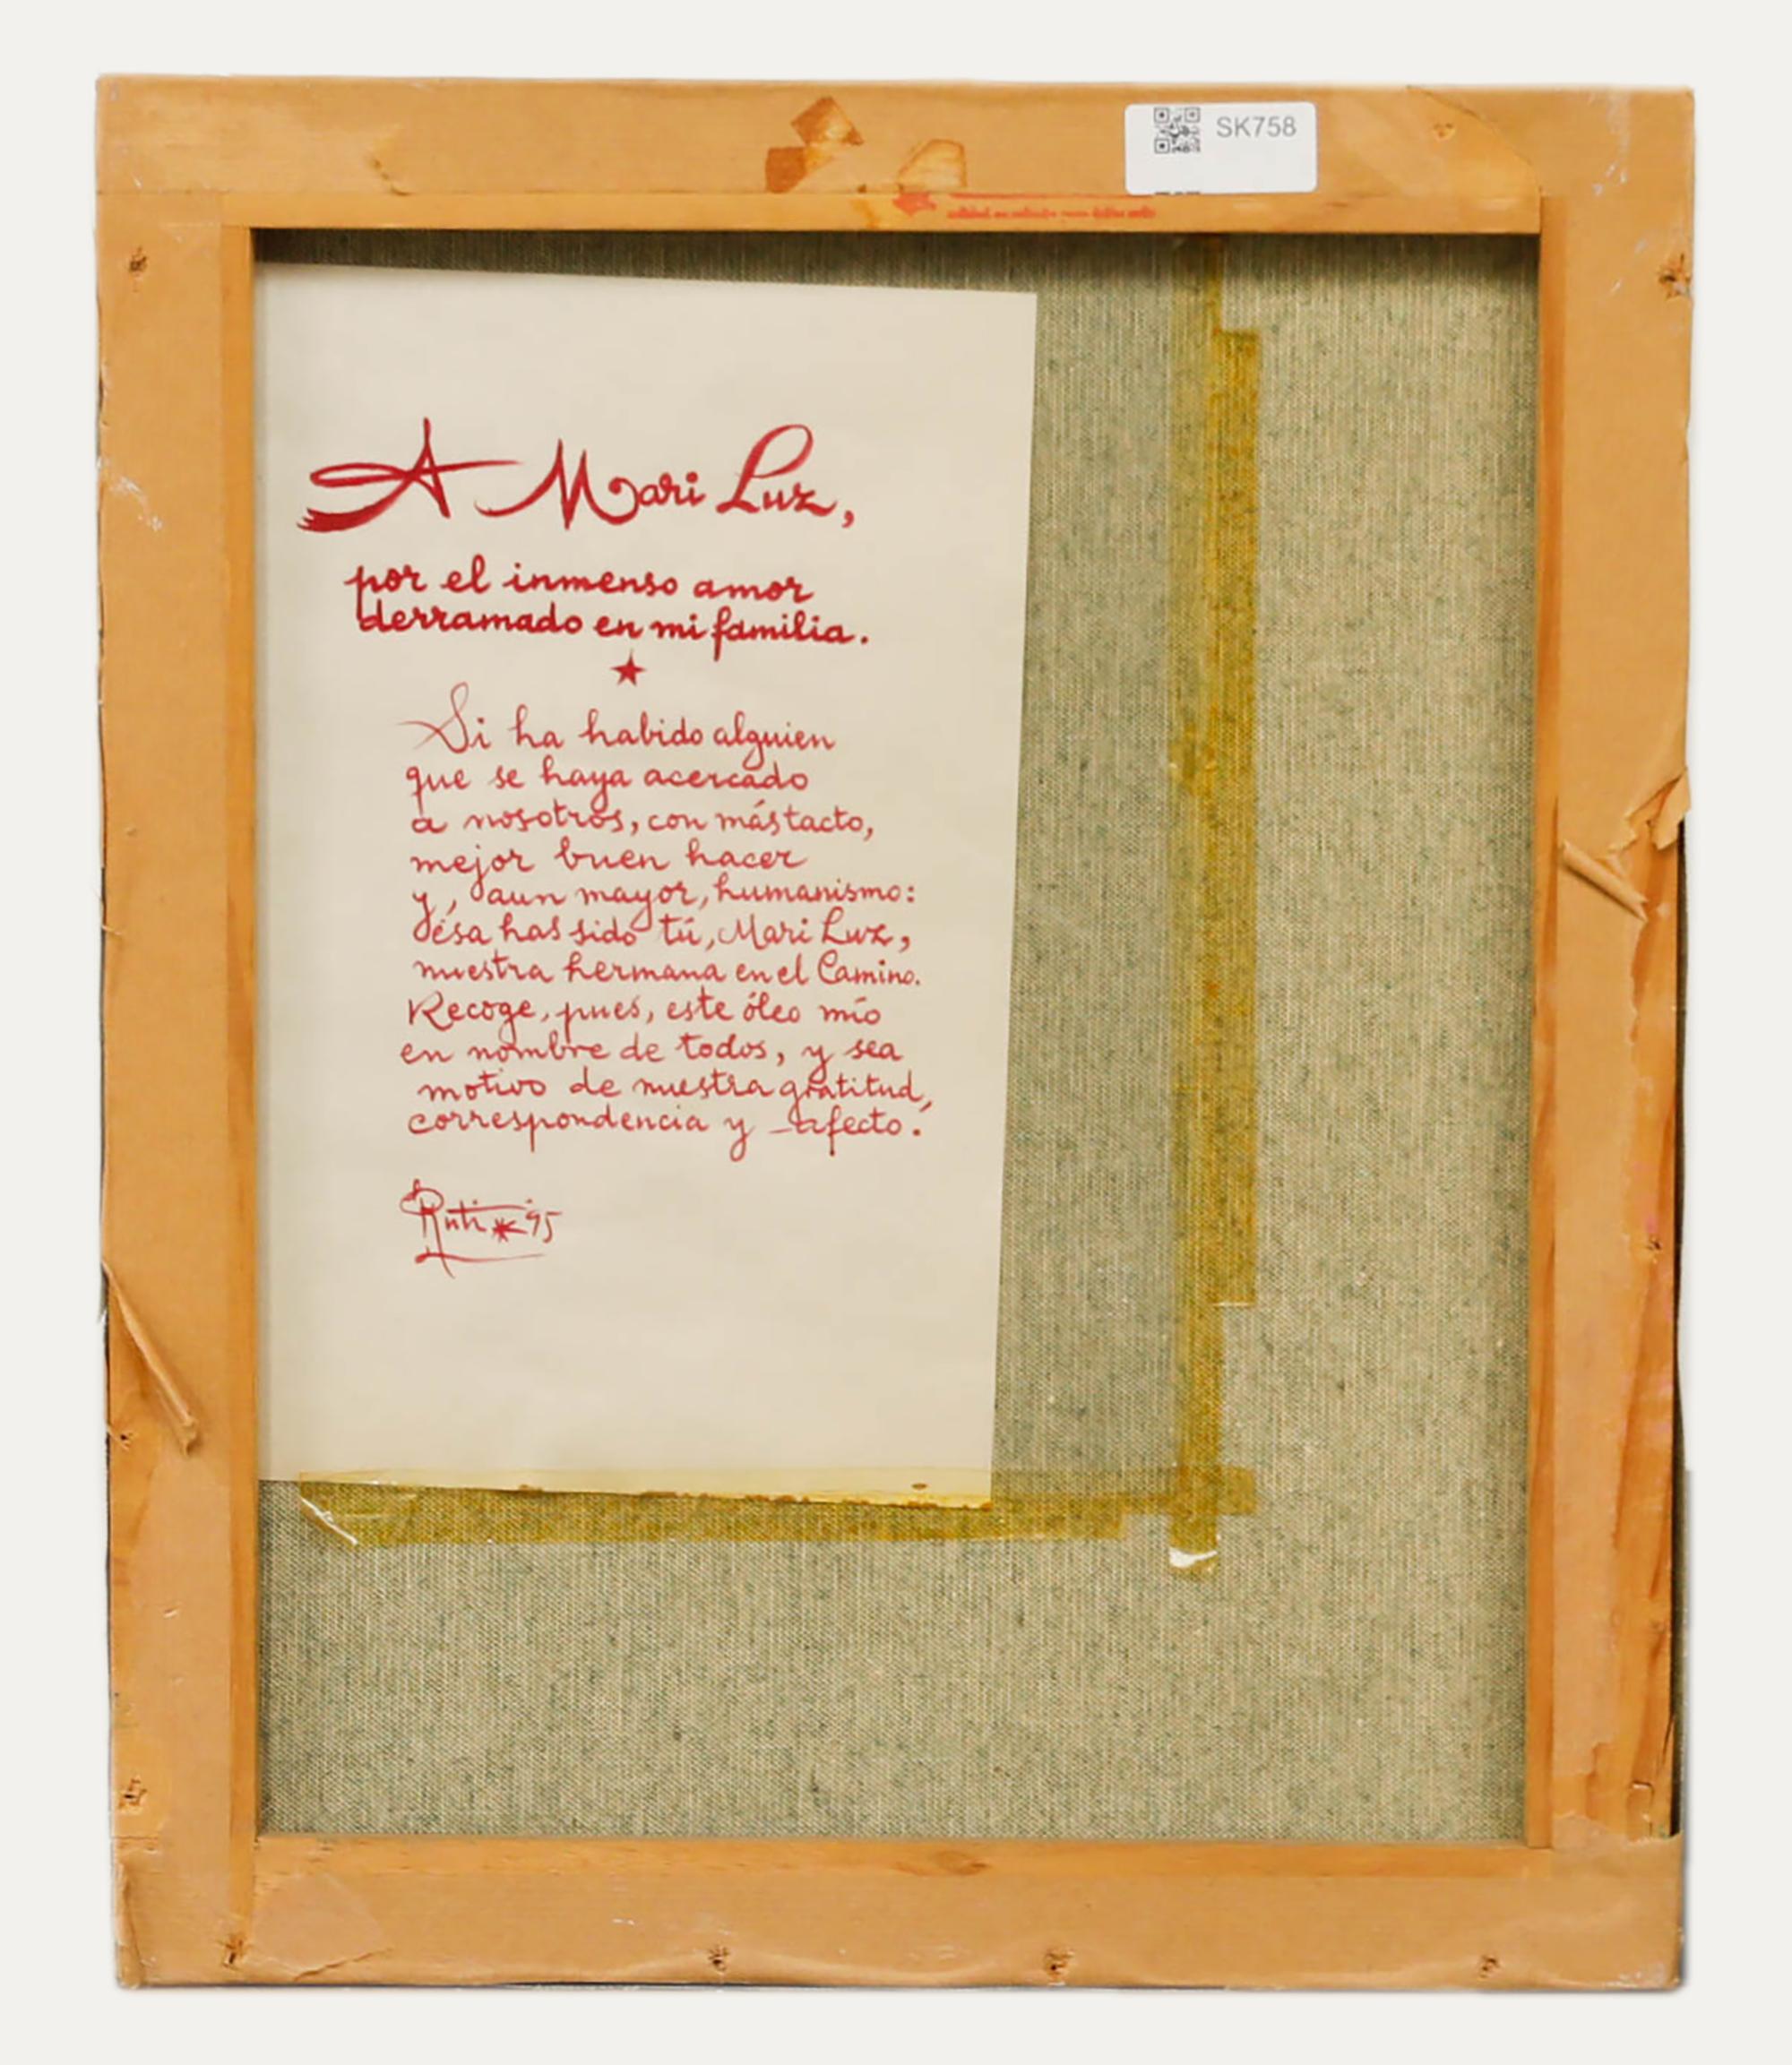 SK758
A Mari Luz,
por el inmenso amor
derramado en mi familia.
Si ha habido alguien
que se haya acercado
a nosotros, con más tacto,
mejor buen hacer
y, aun mayor, humanismo:
ésa has sido tú, Mari Luz,
nuestra hermana en el Camino.
Recoge, pues, este óleo mío
en nombre de todos, y sea
motivo de nuestra gratitud,
correspondencia y afecto.
Ruti 95